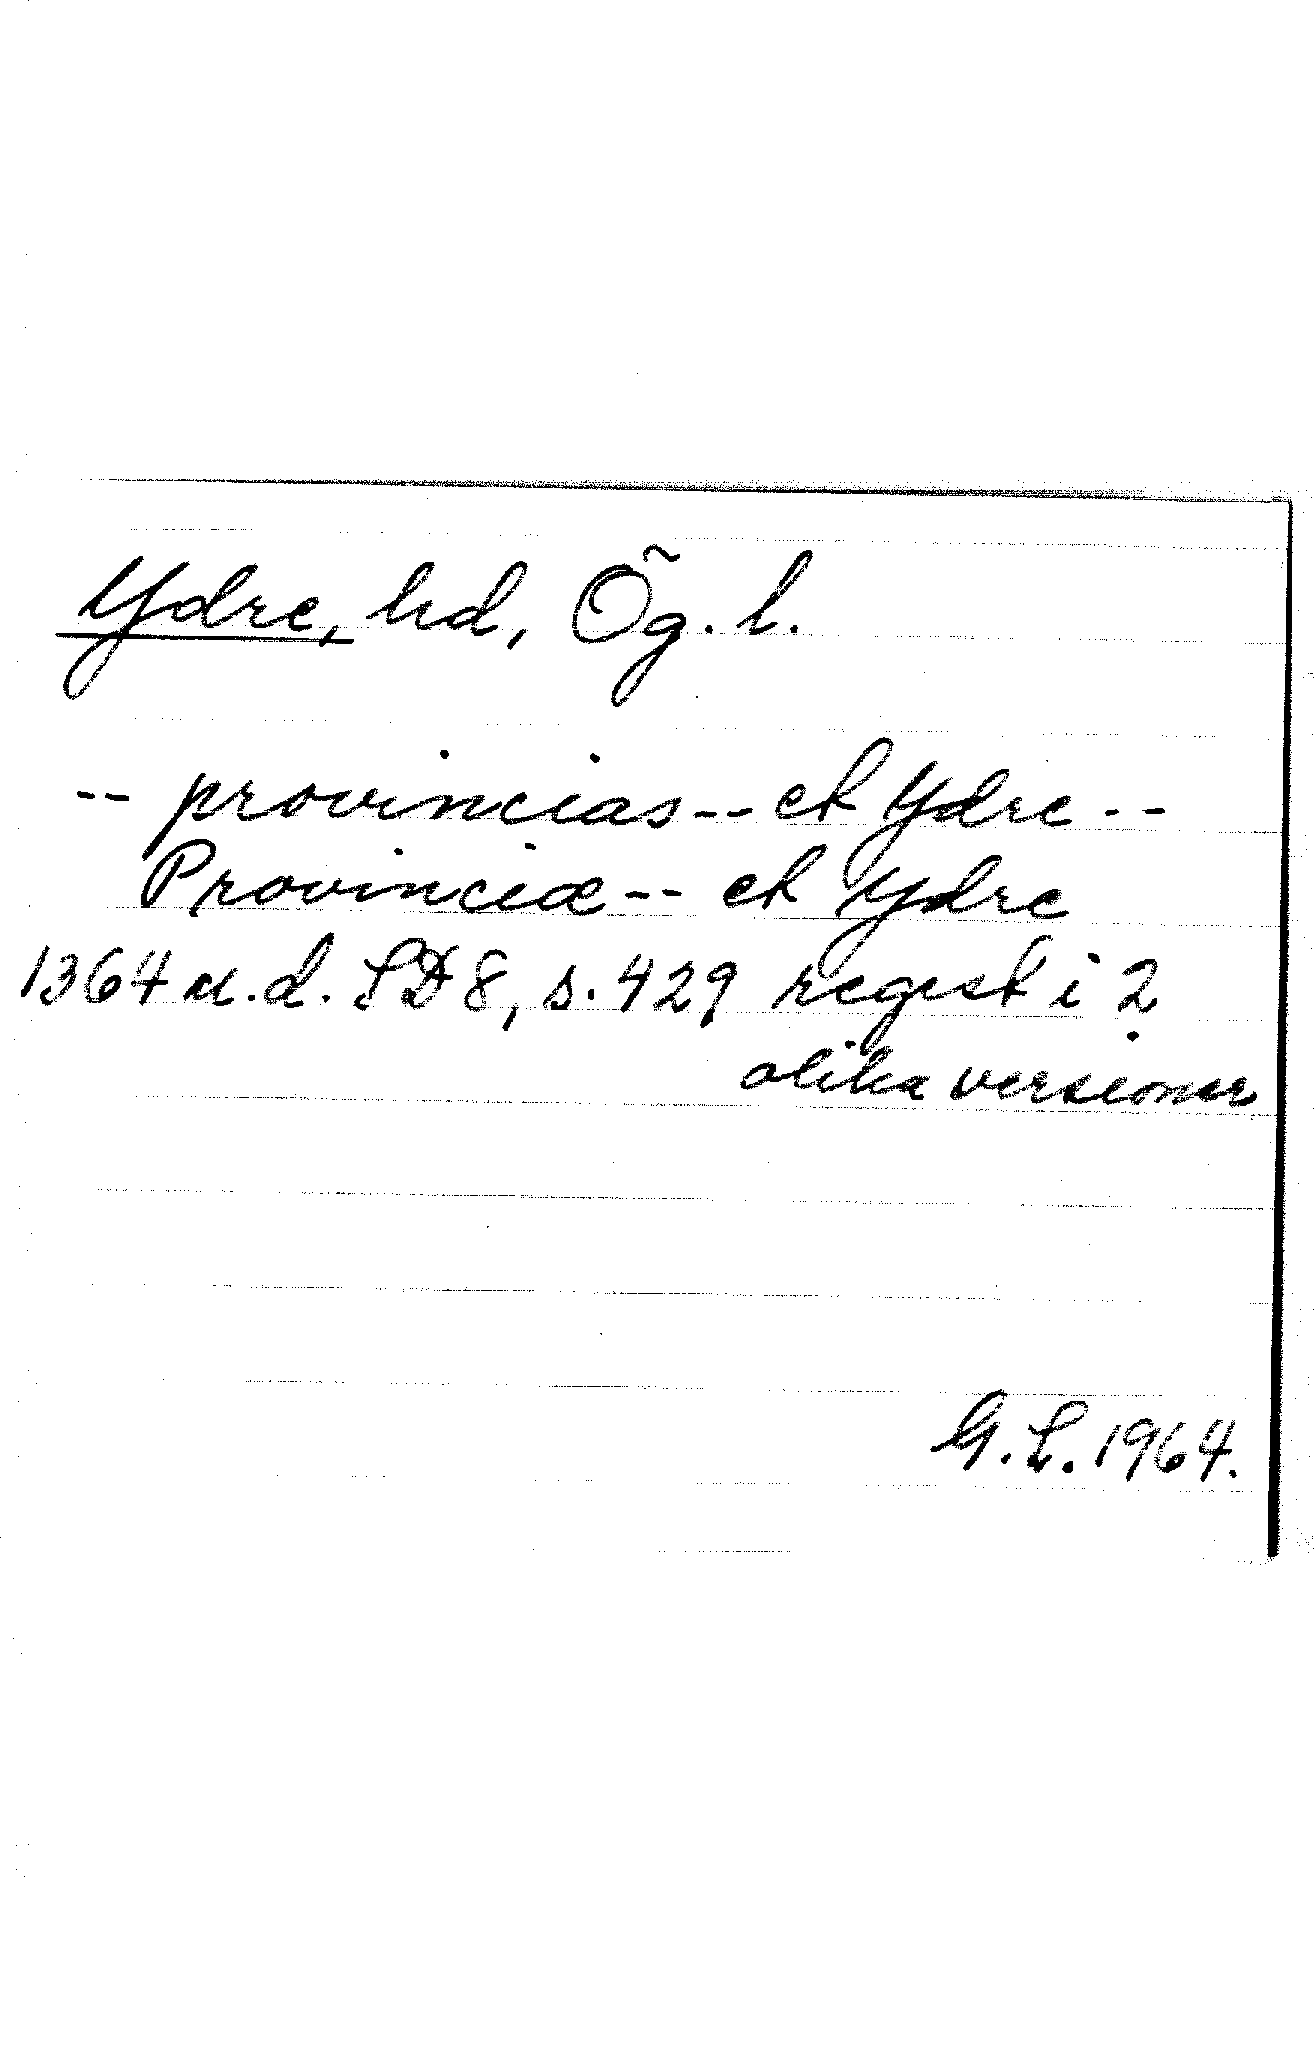 Ydre, hd, Ög. l.
-- provincias -- et Ydre --
Provinciæ -- et Ydre
1364 u.d. SD 8, s. 429 regest i 2
olika versioner
G. L. 1964.